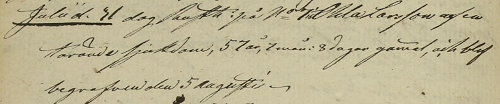 Julii d. 31 dog Hust: på N:o Ola Larsson af en
tärande sjukdom, 57 år, 7 mån: 8 dagar gammal, och blef
begrafven den 5 augusti